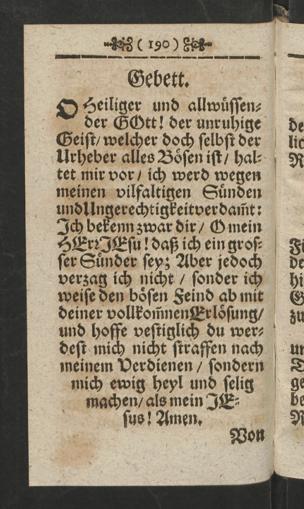 ( 190 )
Gebett.
O Heiliger und allwüssen-
der GOtt! der unruhige
Geist/ welcher doch selbst der
Urheber alles Bösen ist/ hal-
tet mir vor/ ich werd wegen
meinen vilfaltigen Sünden
und Ungerechtigkeit verdam̃t:
Ich bekenn zwar dir/ O mein
HErr JEsu! daß ich ein gros-
ser Sünder sey; Aber jedoch
verzag ich nicht/ sonder ich
weise den bösen Feind ab mit
deiner vollkom̃nen Erlösung/
und hoffe vestiglich du wer-
dest mich nicht straffen nach
meinem Verdienen/ sondern
mich ewig heyl und selig
machen/ als mein JE-
sus! Amen.
Von